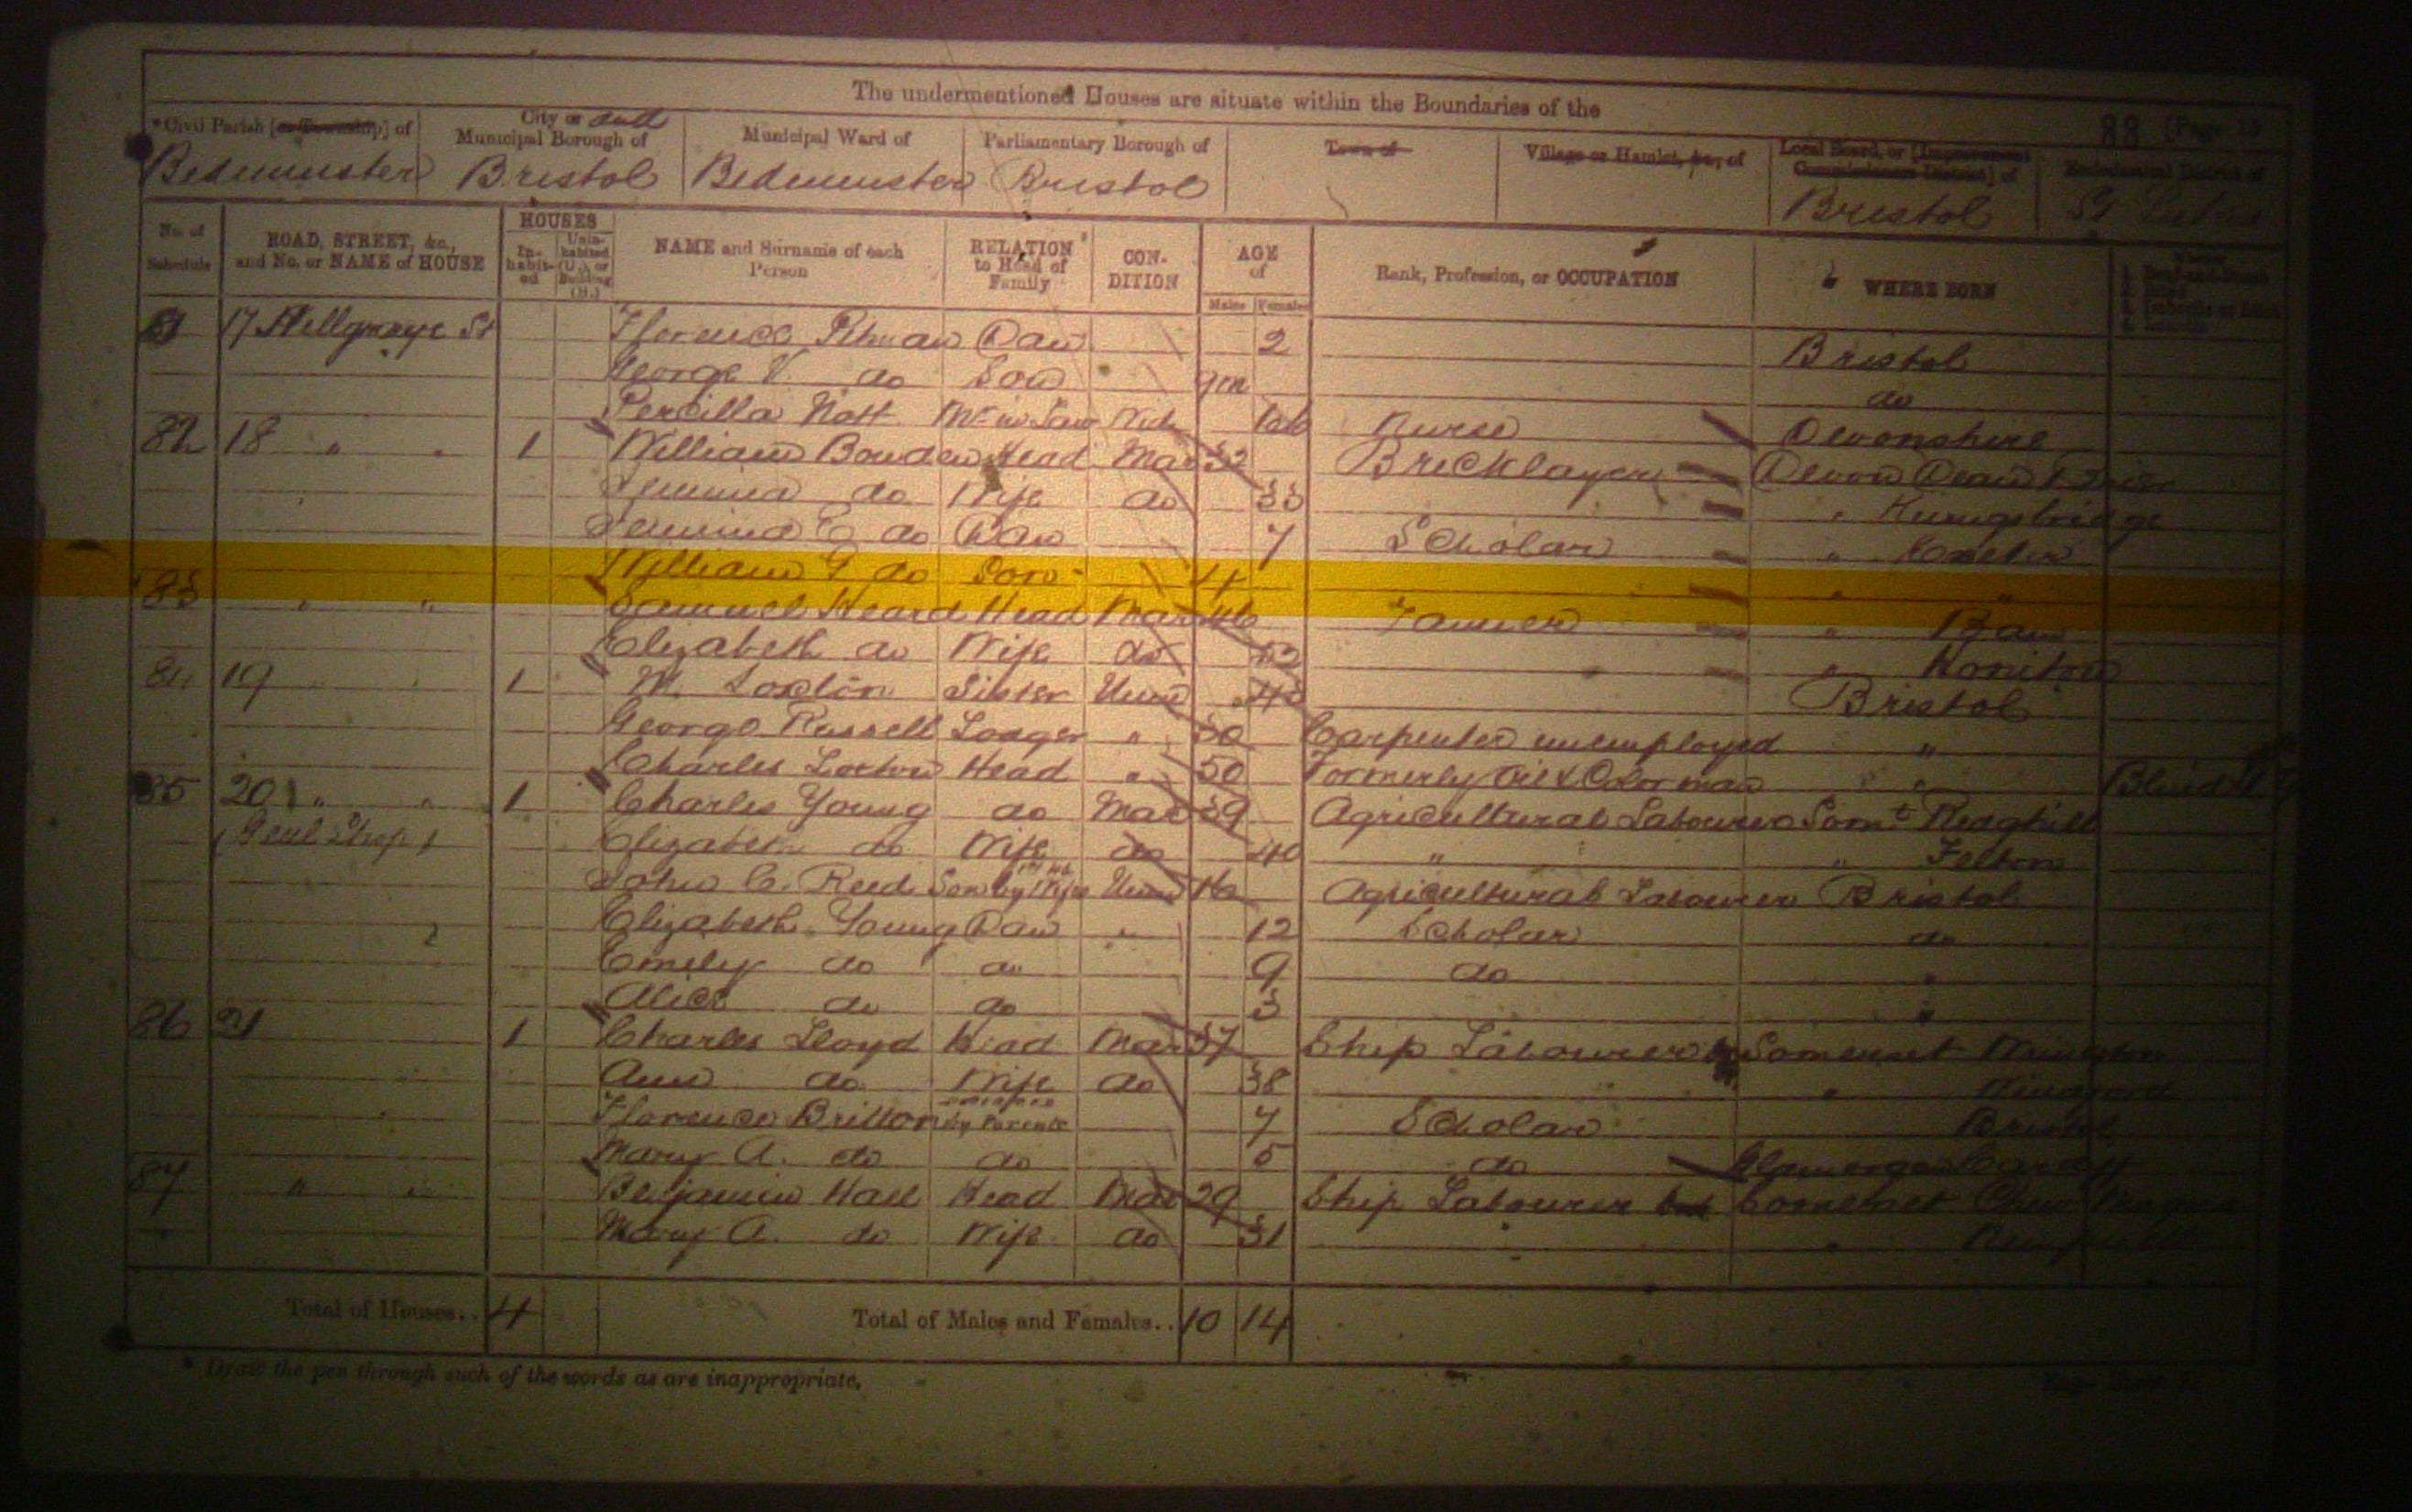 The undermentioned Houses are situate within the Boundaries of the
88 [Page 13
*Civil Parish [or Township] of
City or
Municipal Borough of
Municipal Ward of
Parliamentary Borough of
Town of
Village or Hamlet, &c., of
Local Board, or [Improvement Commissioners District] of
Ecclesiastical District of
Bedminster Bristol Bedminster Bristol Bristol St Lukes
No. of Schedule
ROAD, STREET, &c., and No. or NAME of HOUSE
HOUSES
In-habit-ed
Unin-habited (U.), or Building (B.)
NAME and Surname of each Person
RELATION to Head of Family
CON-DITION
AGE of
Males Females
Rank, Profession, or OCCUPATION
WHERE BORN
81 17 St Florence Pitman Daur 2 Bristol
George V. do Son 9m do
Percilla Nott Mr in Law Wid 66 Nurse Devonshire
82 18 " " 1 William Bowden Head Mar 32 Bricklayer Devon Dean
Jemima do Wife do 33 " Kingsbridge
Jemima E do Daur 7 Scholar " Exeter
William G do Son 4 " "
83 " " Samuel Heard Head Mar 46 Tanner "
Elizabeth do Wife do " Honiton
84 19 " " 1 M. Loxton Sister Unm 40 Bristol
George Russell Lodger " 50 Carpenter unemployed "
Charles Loxton Head " 50 Formerly Oil & Colorman " " Blind
85 20 " " 1 Charles Young do Mar 39 Agricultural Labourer Somt Redghill
(Genl Shop) Elizabeth do Wife do 40 " " Felton
John C. Reed Son by Wife Unm 16 Agricultural Labourer Bristol
Elizabeth Young Daur " 12 Scholar do
Emily do do 9 do "
Alice do do 3 "
86 21 1 Charles Lloyd Head Mar 37 Ship Labourer Somerset
Ann do Wife do 38 "
Florence Britton by Parents 7 Scholar Bristol
Mary A. do do 5 do Glamorgan Cardiff
87 " " Benjamin Hall Head Mar 29 Ship Labourer Somerset Chew Magna
Mary A. do Wife do 31 "
Total of Houses.. 4
Total of Males and Females.. 10 14
* Draw the pen through such of the words as are inappropriate.